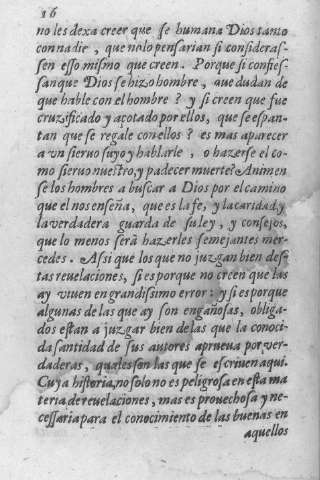 16
no les dexa creer que se humana Dios tanto
con nadie, que no lo pensarian si considerasſ-
sen esso mismo que creen. Porque si confies-
san que Dios se hizo hombre, que dudan de
que hable con el hombre? y si creen que fue
cruzificado y açotado por ellos, que se espan-
tan que se regale con ellos? es mas aparecer
a vn sieruo suyo y hablarle, o hazerse el co-
mo sieruo nuestro, y padecer muerte? Animen
se los hombres a buscar a Dios por el camino
que el nos enseña, que es la fe, y la caridad, y
la verdadera guarda de su ley, y consejos,
que lo menos serà hazerles semejantes mer-
cedes. Assi que los que no juzgan bien dest̃-
tas reuelaciones, si es porque no creen que las
ay viuen en grandissimo error: y si es porque
algunas de las que ay son engañosas, obliga-
dos estan a juzgar bien de las que la conoci-
da santidad de sus autores aprueua por ver-
daderas, quales son las que se escriuen aqui.
Cuya historia, no solo no es peligrosa en esta ma
teria de reuelaciones, mas es prouechosa y ne-
cessaria para el conocimiento de las buenas en
aquellos